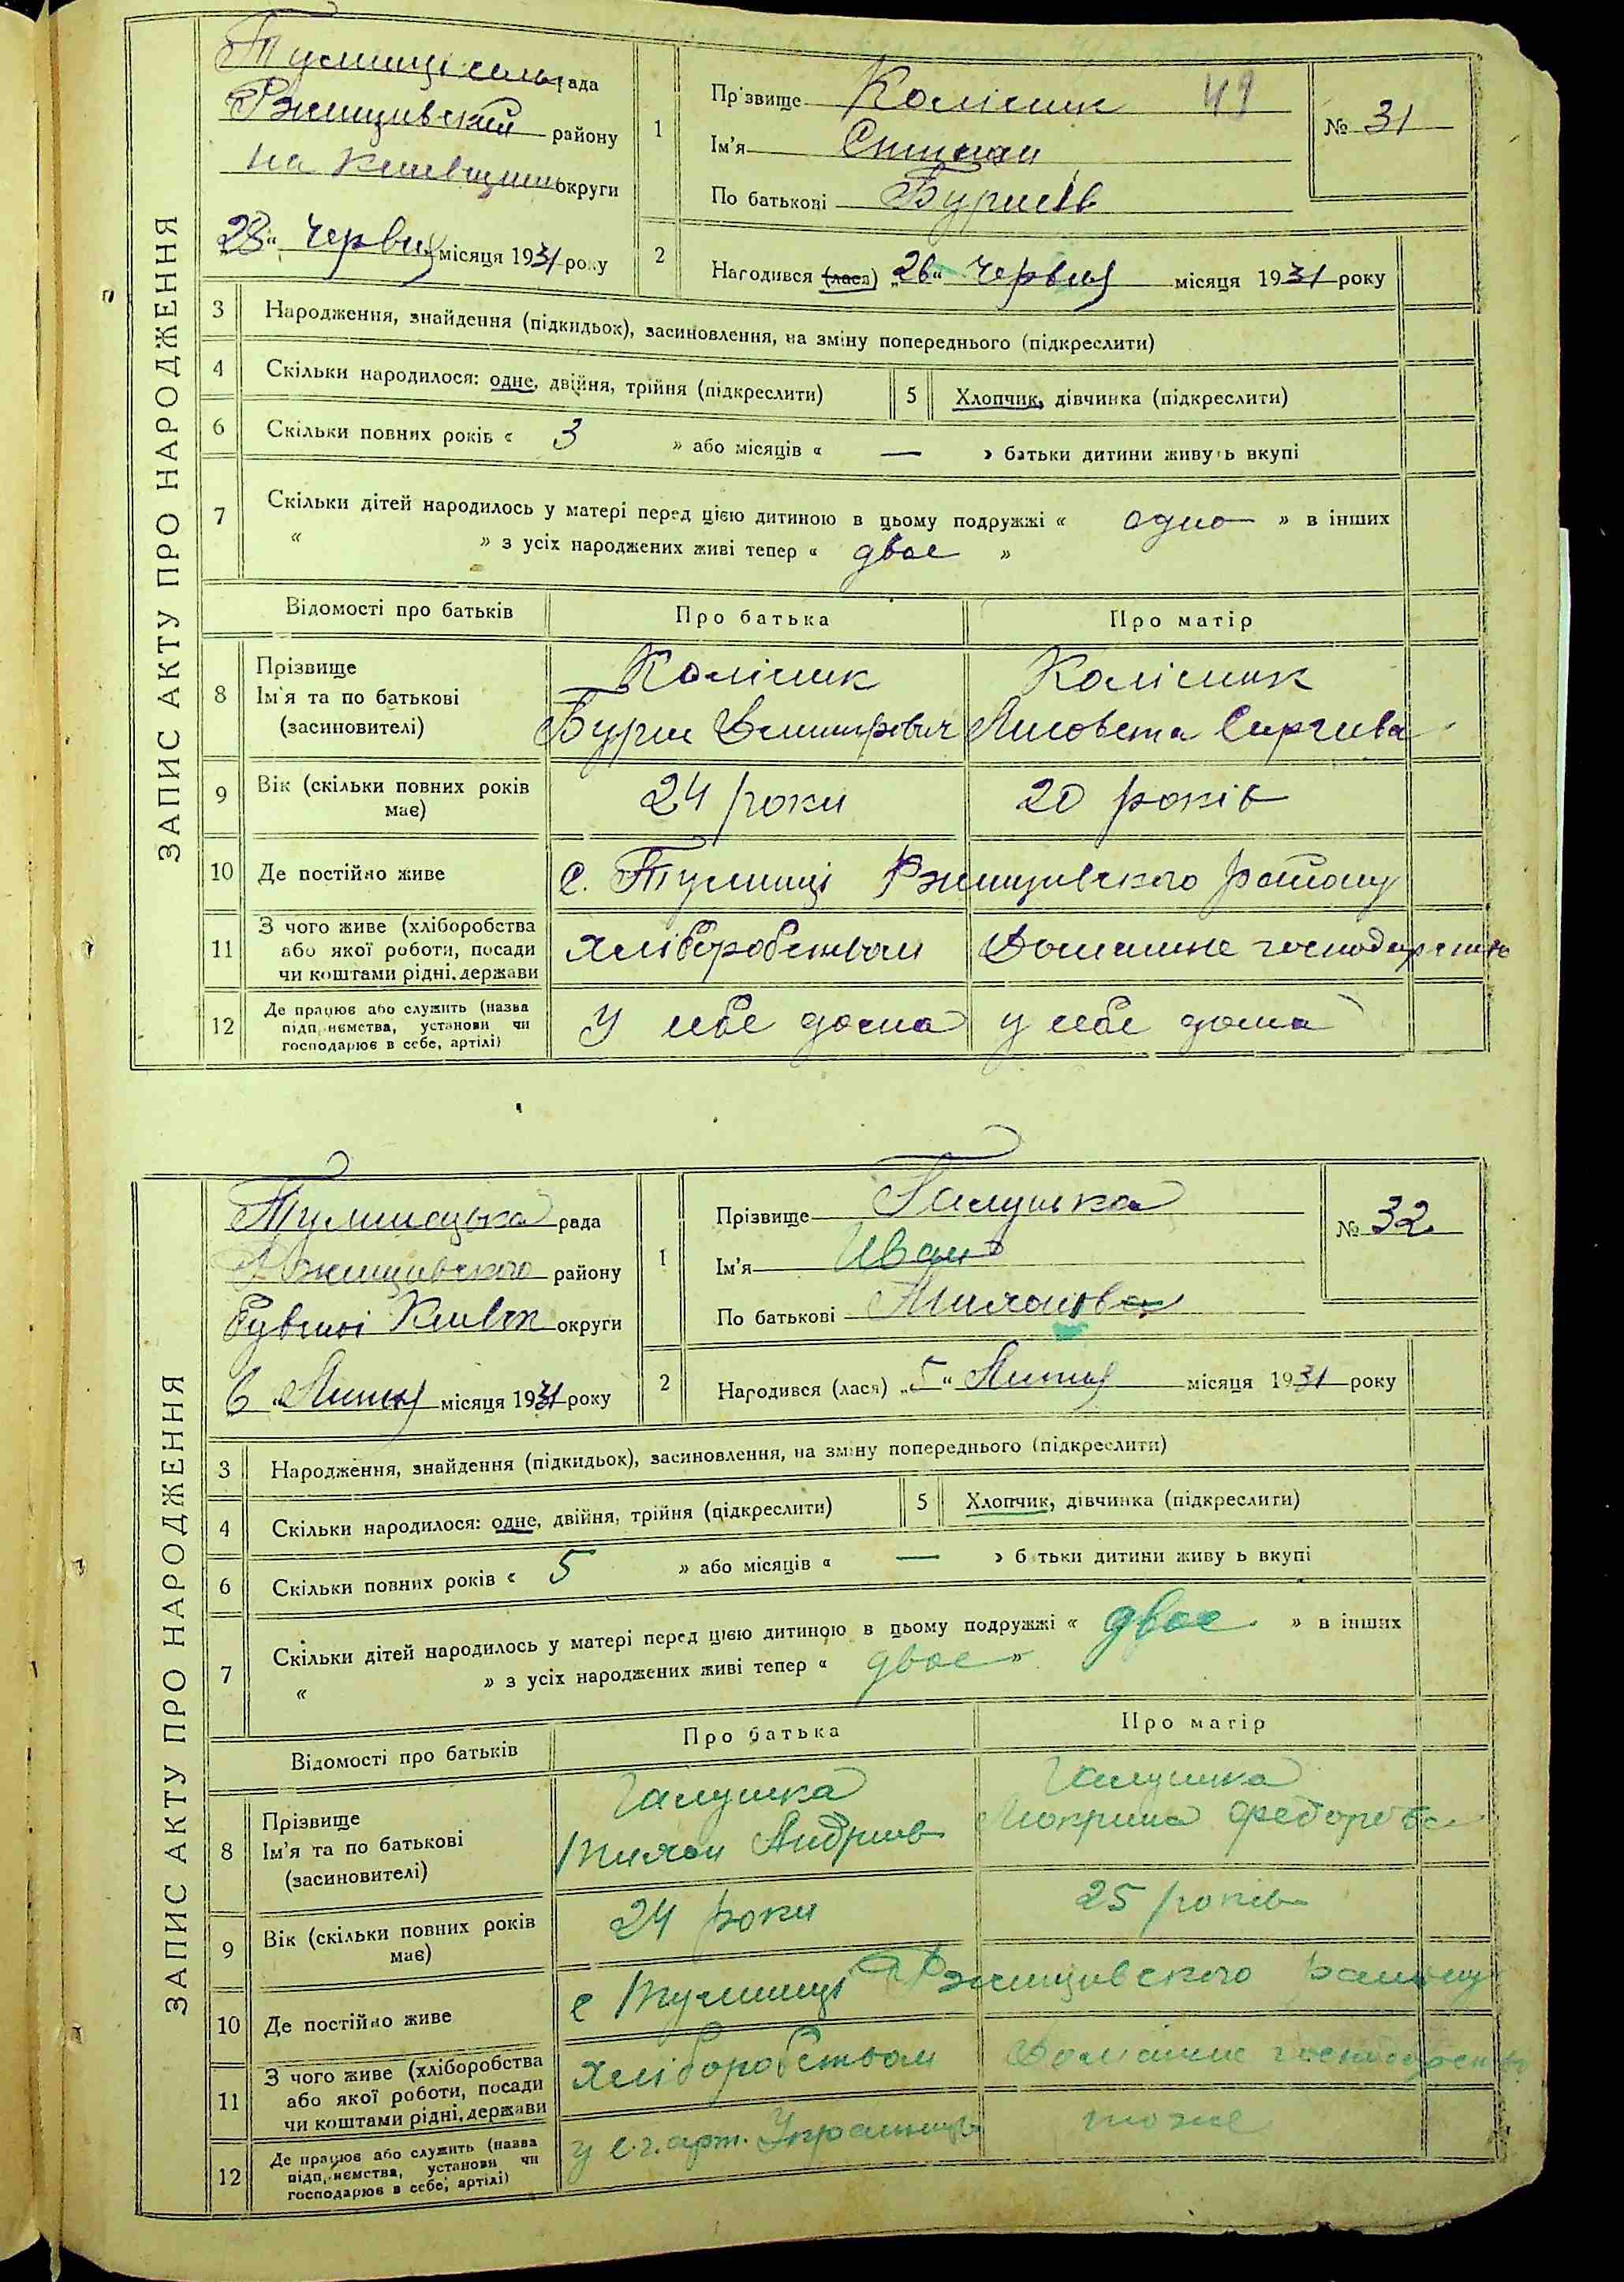 ЗАПИС АКТУ ПРО НАРОДЖЕННЯ
Тулинці сельрада
Ржищивский району
на Киівщині округи
28 " червня місяця 1931 року
1
Прізвище Колісник 49
Ім'я
По батькові Бурисів
№ 31
2
Народився (лася) „26" червня місяця 1931 року
3 Народження, знайдення (підкидьок), засиновлення, на зміну попереднього (підкреслити)
4 Скільки народилося: одне, двійня, трійня (підкреслити) 5 Хлопчик, дівчинка (підкреслити)
6 Скільки повних років « 3 » або місяців « — » батьки дитини живуть вкупі
7 Скільки дітей народилось у матері перед цією дитиною в цьому подружжі « одно » в інших
« » з усіх народжених живі тепер « двое »
Відомості про батьків Про батька Про матір
8 Прізвище
Ім'я та по батькові
(засиновителі)
Колісник
Бурис Демитрович
Колісник
Лисовета Сиргиева
9 Вік (скільки повних років має)
24 роки
20 років
10 Де постійно живе
с. Тулинці Ржищивского району
11 З чого живе (хліборобства
або якої роботи, посади
чи коштами рідні, держави
хліборобством
Домашне господарство
12 Де працює або служить (назва
підприємства, установи чи
господарює в себе, артілі)
У себе дома
у себе дома
ЗАПИС АКТУ ПРО НАРОДЖЕННЯ
Тулинецька рада
Ржищивского району
округи
6 " Липня місяця 1931 року
1
Прізвище Галушка
Ім'я Иван
По батькові Тихонова
№ 32
2
Народився (лася) „5" Липня місяця 1931 року
3 Народження, знайдення (підкидьок), засиновлення, на зміну попереднього (підкреслити)
4 Скільки народилося: одне, двійня, трійня (підкреслити) 5 Хлопчик, дівчинка (підкреслити)
6 Скільки повних років « 5 » або місяців « — » батьки дитини живуть вкупі
7 Скільки дітей народилось у матері перед цією дитиною в цьому подружжі « двое » в інших
« » з усіх народжених живі тепер « двое »
Відомості про батьків Про батька Про матір
8 Прізвище
Ім'я та по батькові
(засиновителі)
Галушка
Тихон Андриів
Галушка
Мокрина Федорова
9 Вік (скільки повних років має)
24 роки
25 років
10 Де постійно живе
с Тулинці Ржищивского району
11 З чого живе (хліборобства
або якої роботи, посади
чи коштами рідні, держави
хліборобством
Домашне господарство
12 Де працює або служить (назва
підприємства, установи чи
господарює в себе, артілі)
у с.г. арт.
тоже